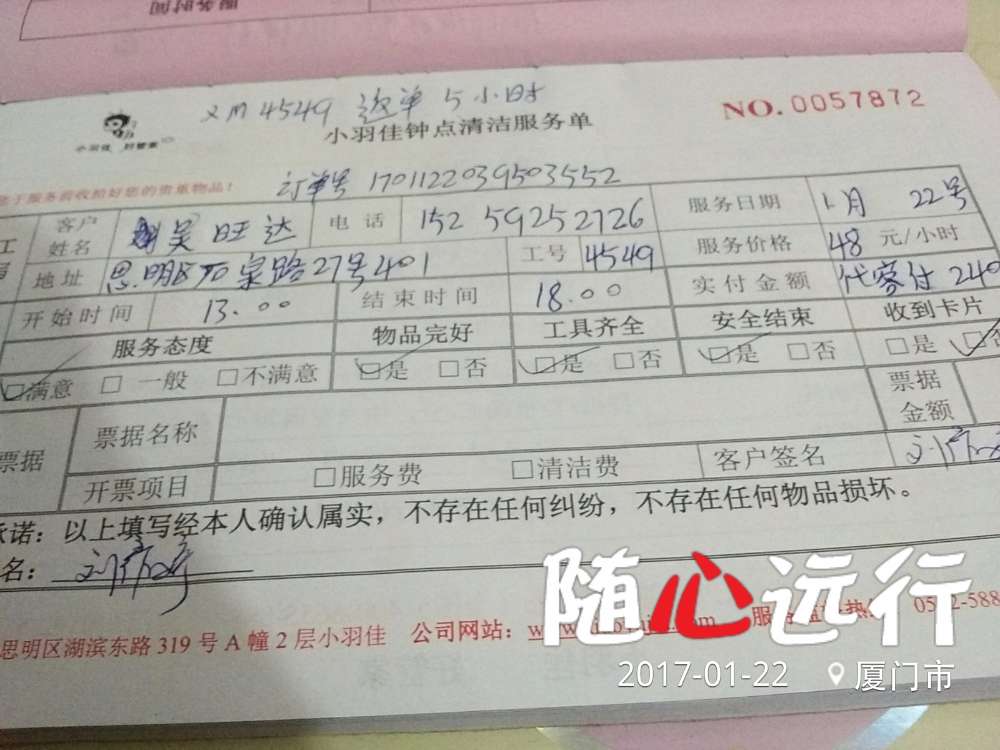 服务时间
XM 4549 返单 5小时
小羽佳 好管家
小羽佳钟点清洁服务单
NO. 0057872
于服务前收拾好您的贵重物品!
订单号 1701122039503552
客户姓名 吴旺达 电话 152 59252726 服务日期 1月 22号
地址 思明区 路27号401 工号 4549 服务价格 48 元/小时
开始时间 13.00 结束时间 18.00 实付金额 代客付 240
服务态度 物品完好 工具齐全 安全结束 收到卡片
□满意 □一般 □不满意 □是 □否 □是 □否 □是 □否 □是 □否
票据 票据名称 票据金额
开票项目 □服务费 □清洁费 客户签名
承诺:以上填写经本人确认属实,不存在任何纠纷,不存在任何物品损坏。
名:
思明区湖滨东路 319 号 A 幢 2 层小羽佳 公司网站:
随心远行
2017-01-22 厦门市